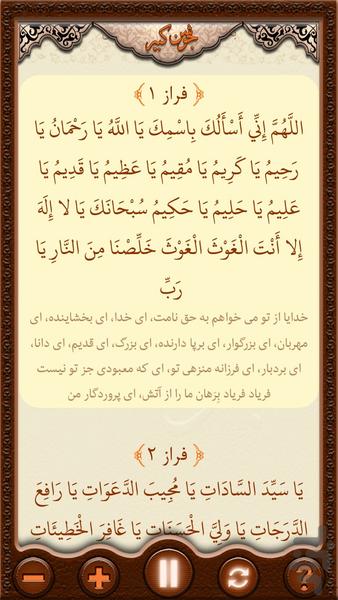 جوشن کبیر
﴿ فراز ۱ ﴾
اللَّهُمَّ إِنِّي أَسْأَلُكَ بِاسْمِكَ يَا اللَّهُ يَا رَحْمَانُ يَا
رَحِيمُ يَا كَرِيمُ يَا مُقِيمُ يَا عَظِيمُ يَا قَدِيمُ يَا
عَلِيمُ يَا حَلِيمُ يَا حَكِيمُ سُبْحَانَكَ يَا لا إِلَهَ
إِلا أَنْتَ الْغَوْثَ الْغَوْثَ خَلِّصْنَا مِنَ النَّارِ يَا
رَبِّ
خدایا از تو می خواهم به حق نامت، ای خدا، ای بخشاینده، ای
مهربان، ای بزرگوار، ای برپا دارنده، ای بزرگ، ای قدیم، ای دانا،
ای بردبار، ای فرزانه منزهی تو، ای که معبودی جز تو نیست
فریاد فریاد بِرَهان ما را از آتش، ای پروردگار من
﴿ فراز ۲ ﴾
يَا سَيِّدَ السَّادَاتِ يَا مُجِيبَ الدَّعَوَاتِ يَا رَافِعَ
الدَّرَجَاتِ يَا وَلِيَّ الْحَسَنَاتِ يَا غَافِرَ الْخَطِيئَاتِ
?